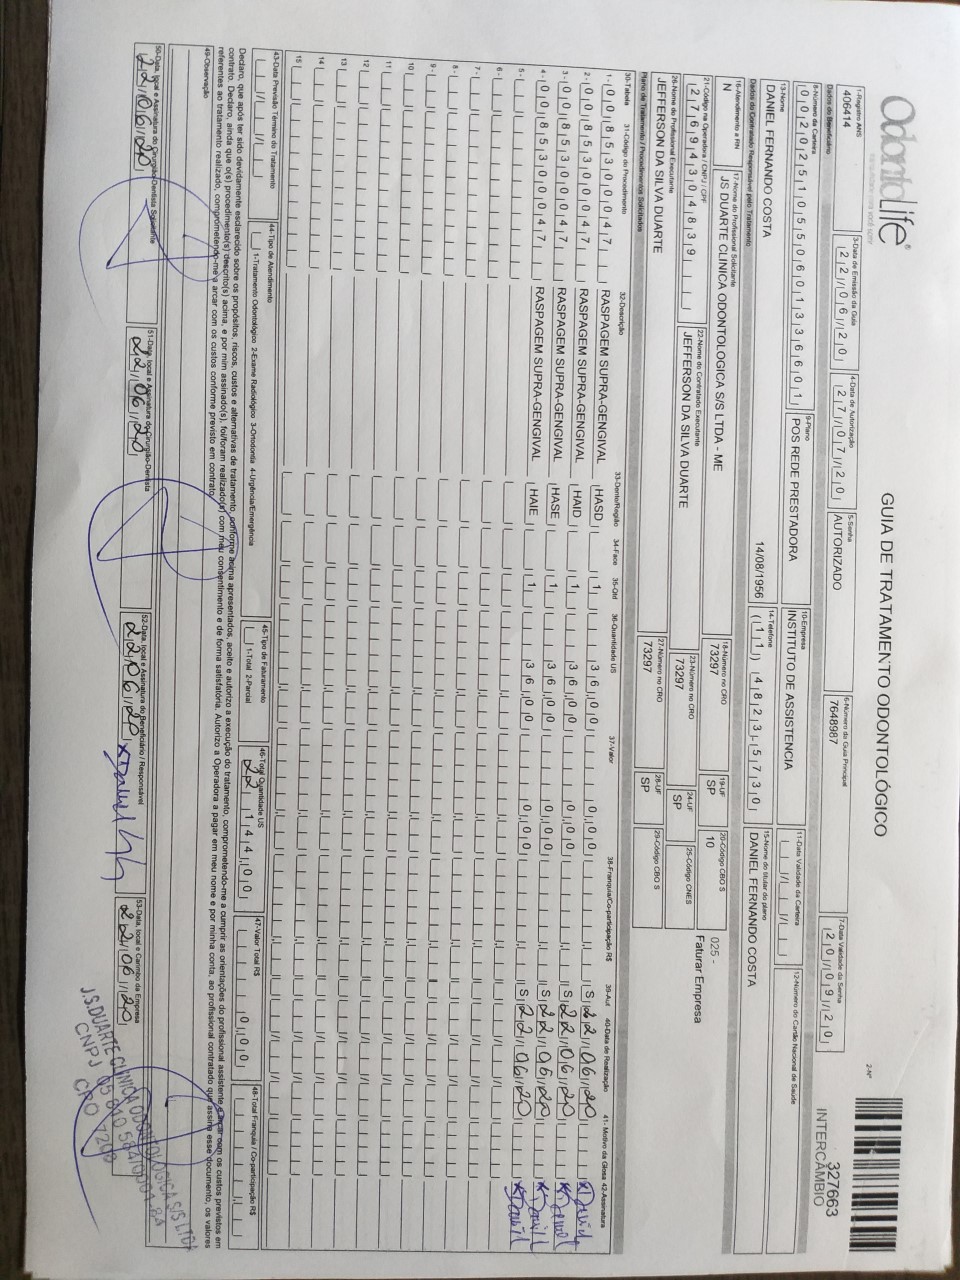 OdontoLife®
GUIA DE TRATAMENTO ODONTOLÓGICO
2-Nº
327663
INTERCÂMBIO
1-Registro ANS
406414
3-Data de Emissão da Guia
22/06/20
4-Data de Autorização
27/07/20
5-Senha
AUTORIZADO
6-Número da Guia Principal
7648987
7-Data Validade da Senha
20/09/20
Dados do Beneficiário
8-Número da Carteira
00202510550601133660 1
9-Plano
POS REDE PRESTADORA
10-Empresa
INSTITUTO DE ASSISTENCIA
11-Data Validade da Carteira
12-Número do Cartão Nacional de Saúde
13-Nome
DANIEL FERNANDO COSTA
14/08/1956
14-Telefone
(11) 4823-5730
15-Nome do titular do plano
DANIEL FERNANDO COSTA
Dados do Contratado Responsável pelo Tratamento
16-Atendimento a RN
N
17-Nome do Profissional Solicitante
JS DUARTE CLINICA ODONTOLOGICA S/S LTDA - ME
18-Número no CRO
73297
19-UF
SP
20-Código CBO S
10
025 -
Faturar Empresa
21-Código na Operadora / CNPJ / CPF
27694304839
22-Nome do Contratado Executante
JEFFERSON DA SILVA DUARTE
23-Número no CRO
73297
24-UF
SP
25-Código CNES
26-Nome do Profissional Executante
JEFFERSON DA SILVA DUARTE
27-Número no CRO
73297
28-UF
SP
29-Código CBO S
Plano de Tratamento / Procedimentos Solicitados
30-Tabela 31-Código do Procedimento 32-Descrição 33-Dente/Região 34-Face 35-Qtd 36-Quantidade US 37-Valor 38-Franquia/Co-participação R$ 39-Aut 40-Data de Realização 41- Motivo da Glosa 42-Assinatura
1- 00 85300047 RASPAGEM SUPRA-GENGIVAL HASD 1 36,00 0,00 S 22/06/20
2- 00 85300047 RASPAGEM SUPRA-GENGIVAL HAID 1 36,00 0,00 S 22/06/20
3- 00 85300047 RASPAGEM SUPRA-GENGIVAL HASE 1 36,00 0,00 S 22/06/20
4- 00 85300047 RASPAGEM SUPRA-GENGIVAL HAIE 1 36,00 0,00 S 22/06/20
5-
6-
7-
8-
9-
10
11
12
13
14
15
43-Data Previsão Término do Tratamento
44-Tipo de Atendimento
1-Tratamento Odontológico 2-Exame Radiológico 3-Ortodontia 4-Urgência/Emergência
45-Tipo de Faturamento
1-Total 2-Parcial
46-Total Quantidade US
144,00
47-Valor Total R$
0,00
48-Total Franquia / Co-participação R$
Declaro, que após ter sido devidamente esclarecido sobre os propósitos, riscos, custos e alternativas de tratamento, conforme acima apresentados, aceito e autorizo a execução do tratamento, comprometendo-me a cumprir as orientações do profissional assistente e arcar com os custos previstos em
contrato. Declaro, ainda que o(s) procedimento(s) descrito(s) acima, e por mim assinado(s), foi/foram realizado(s) com meu consentimento e de forma satisfatória. Autorizo a Operadora a pagar em meu nome e por minha conta, ao profissional contratado que assina esse documento, os valores
referentes ao tratamento realizado, comprometendo-me a arcar com os custos conforme previsto em contrato.
49-Observação
50-Data, local e Assinatura do Cirurgião-Dentista Solicitante
22/06/20
51-Data, local e Assinatura do Cirurgião-Dentista
22/06/20
52-Data, local e Assinatura do Beneficiário / Responsável
22/06/20
53-Data, local e Carimbo da Empresa
22/06/20
J.S.DUARTE CLINICA ODONTOLOGICA S/S LTDA
CNPJ
CRO